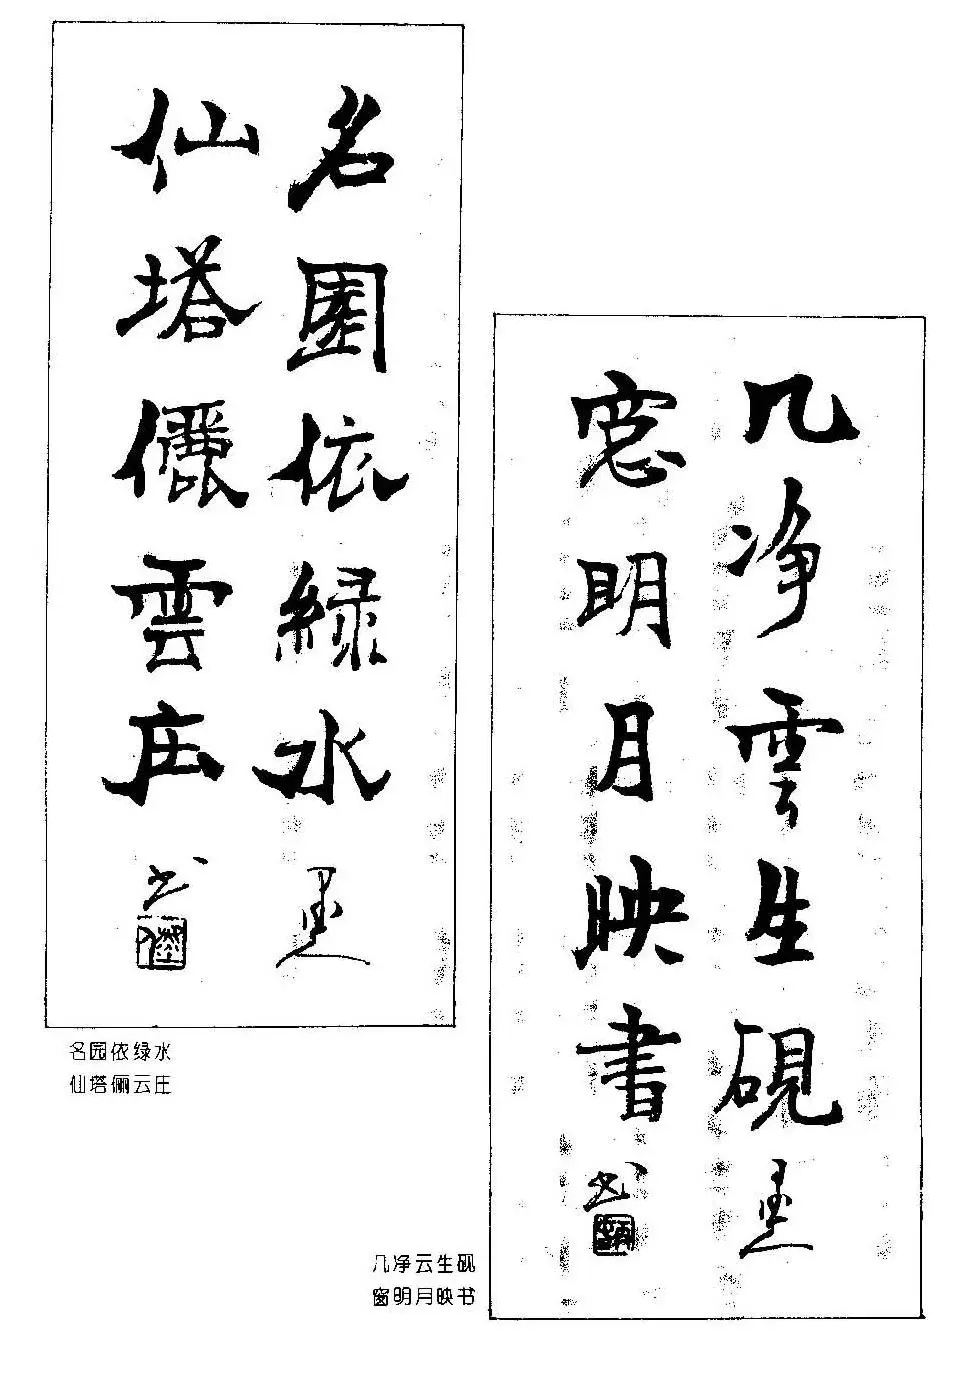 名園依綠水
仙塔儷雲庄
书
名园依绿水
仙塔俪云庄
几净雲生硯
窓明月映書
书
几净云生砚
窗明月映书